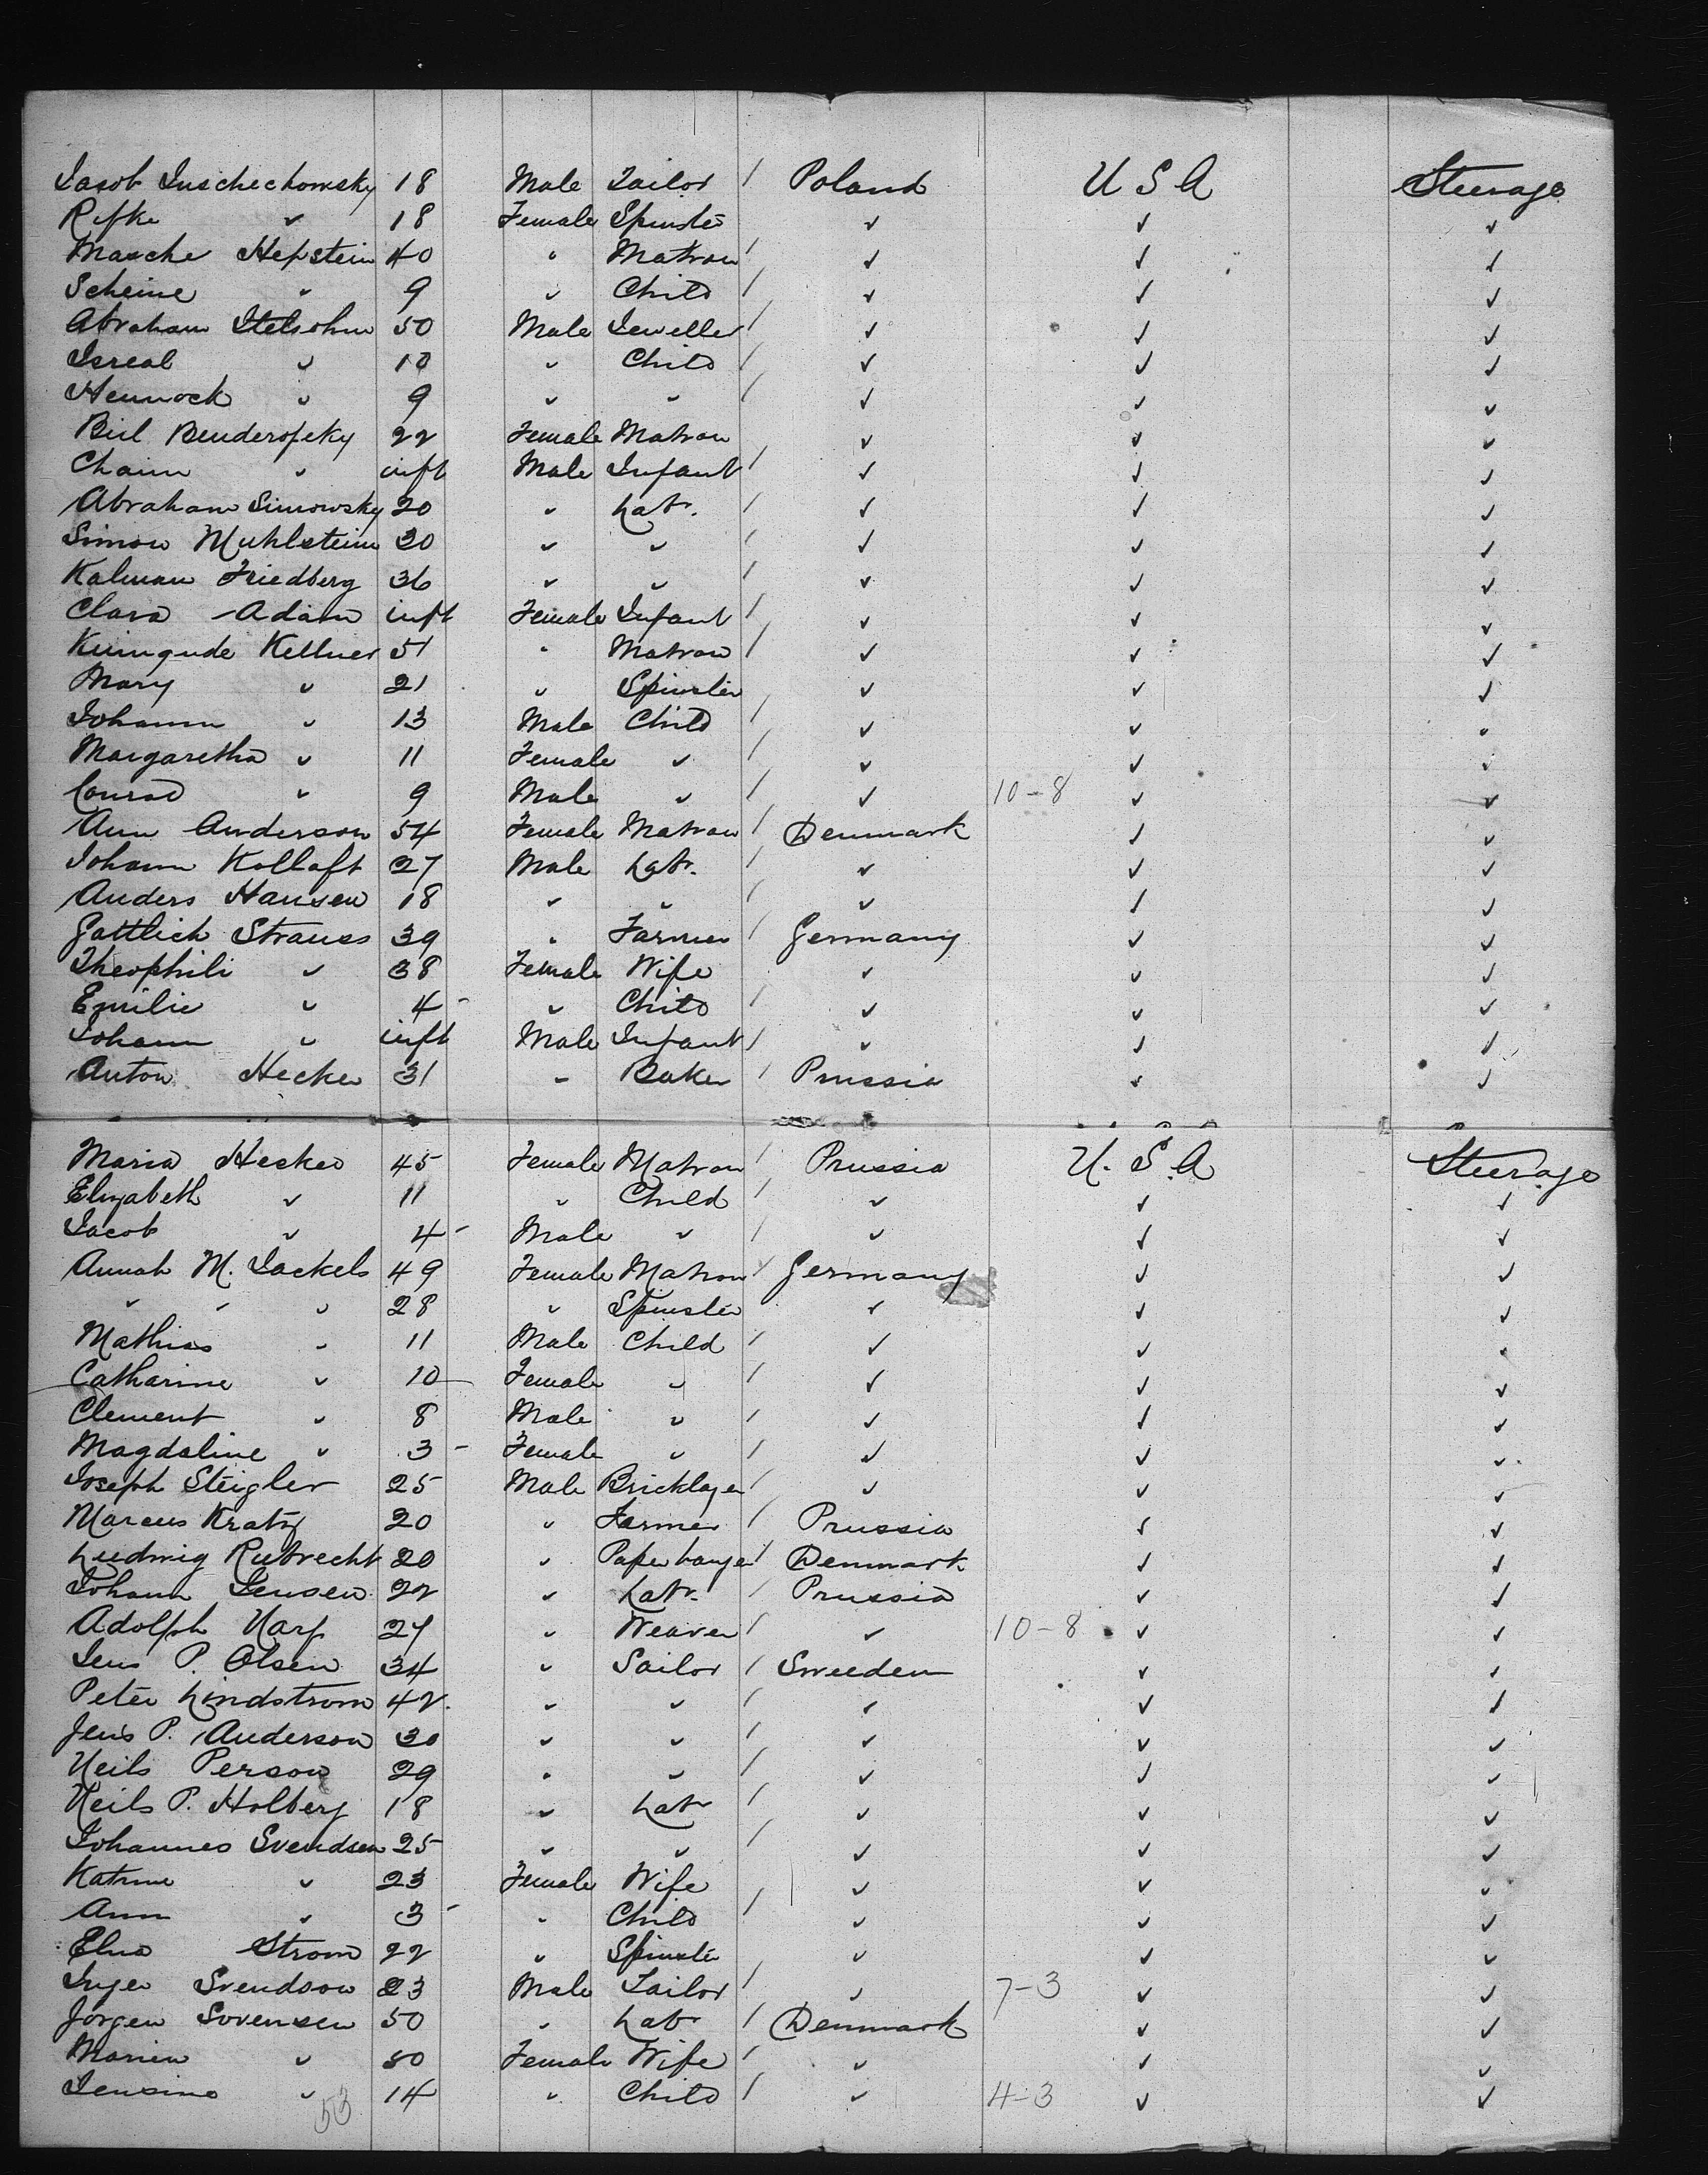 Jacob Juschechowsky 18 Male Tailor / Poland U S A Steerage
Rifke " 18 Female Spinster ✓ ✓ ✓
Masche Hepstein 40 " Matron / ✓ ✓ ✓
Scheine " 9 " Child / ✓ ✓ ✓
Abraham Itelsohn 50 Male Jeweller / ✓ ✓ ✓
Isreal " 10 " Child / ✓ ✓ ✓
Hennock " 9 " " / ✓ ✓ ✓
Benderofsky 22 Female Matron ✓ ✓ ✓
Chaim " inft Male Infant / ✓ ✓ ✓
Abraham Simowsky 20 " Labr. / ✓ ✓ ✓
Simon Muhlstein 30 " " / ✓ ✓ ✓
Kalman Friedberg 36 " " / ✓ ✓ ✓
Clara Adam inft Female Infant / ✓ ✓ ✓
Kuingude Kellner 51 " Matron / ✓ ✓ ✓
Mary " 21 " Spinster / ✓ ✓ ✓
Johann " 13 Male Child / ✓ ✓ ✓
Margaretha " 11 Female " / ✓ ✓ ✓
Conrad " 9 Male " / ✓ 10-8 ✓ ✓
Ann Anderson 54 Female Matron / Denmark ✓ ✓
Johann Kollaft 27 Male Labr. / ✓ ✓ ✓
Anders Hansen 18 " " / ✓ ✓ ✓
Gottlich Strauss 39 " Farmer / Germany ✓ ✓
Theophili " 38 Female Wife ✓ ✓ ✓
Emilie " 4 - " Child / ✓ ✓ ✓
Johann " inft Male Infant / ✓ ✓ ✓
Anton Hecker 31 " Baker / Prussia ✓ ✓
Maria Hecker 45 Female Matron / Prussia U. S. A Steerage
Elizabeth " 11 " Child / ✓ ✓ ✓
Jacob " 4 - Male " / ✓ ✓ ✓
Annah M. Jackels 49 Female Matron / Germany ✓ ✓
" " " 28 " Spinster ✓ ✓ ✓
Mathias " 11 Male Child / ✓ ✓ ✓
Catharine " 10 Female " / ✓ ✓ ✓
Clement " 8 Male " / ✓ ✓ ✓
Magdaline " 3 - Female " / ✓ ✓ ✓
Joseph Steigler 25 Male Bricklayer / ✓ ✓ ✓
Marcus Kratz 20 " Farmer / Prussia ✓ ✓
Ludwig Rubrecht 20 " Paperhanger / Denmark ✓ ✓
Johann Jensen 22 " Labr. / Prussia ✓ ✓
Adolph Narf 27 " Weaver / ✓ 10-8 ✓ ✓
Jens P. Olsen 34 " Sailor / Sweeden ✓ ✓
Peter Lindstrom 42 " " / ✓ ✓ ✓
Jens P. Anderson 30 " " / ✓ ✓ ✓
Neils Person 29 " " / ✓ ✓ ✓
Neils P. Holberg 18 " Labr / ✓ ✓ ✓
Johannes Svendsen 25 " " / ✓ ✓ ✓
Katrine " 23 Female Wife ✓ ✓ ✓
Ann " 3 - " Child / ✓ ✓ ✓
Elna Strom 22 " Spinster ✓ ✓ ✓
Inger Svendson 23 Male Tailor / ✓ 7-3 ✓ ✓
Jorgen Sorensen 50 " Labr / Denmark ✓ ✓
Marien " 50 Female Wife / ✓ ✓ ✓
Jensine " 14 " Child / ✓ 4-3 ✓ ✓
53